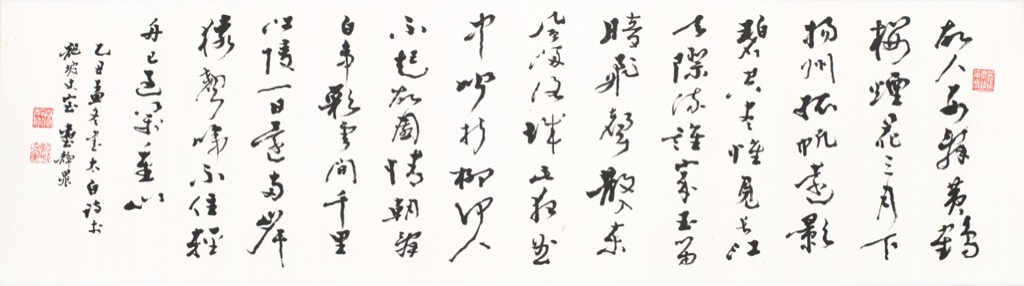 故人西辭黃鶴
樓煙花三月下
揚州孤帆遠影
碧空盡惟見長江
天際流誰家玉笛
暗飛聲散入春
風滿洛城此夜曲
中聞折柳何人
不起故園情朝辭
白帝彩雲間千里
江陵一日還兩岸
猿聲啼不住輕
舟已過萬重山
乙丑孟冬書太白詩於
龍坡丈室 臺靜農